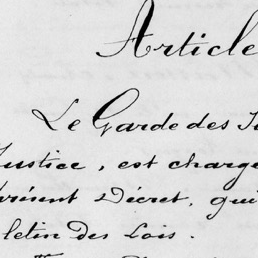 Article
Le Garde des
Justice, est charg
présent Décret, qui
letin des Lois.